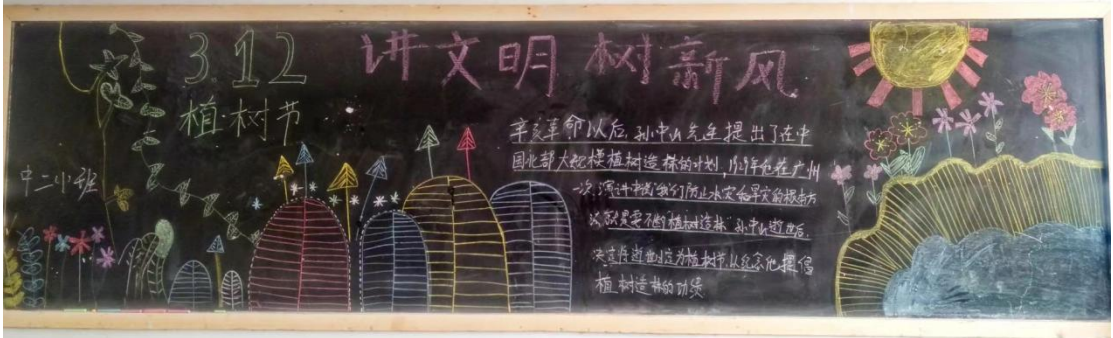 3.12
植树节
中二小班
讲文明树新风
辛亥革命以后,孙中山先生提出了在中
国北部大规模植树造林的计划,年他在广州
一次演讲中说我们防止水灾和旱灾的根本方
法就是要不断植树造林.孙中山逝世后,
决定将逝世日定为植树节,以纪念他提倡
植树造林的功绩